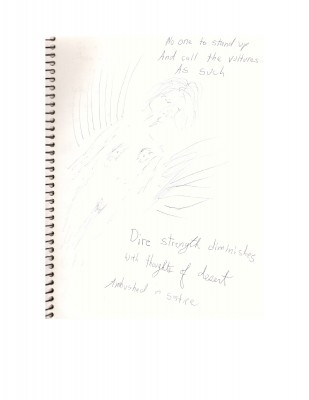 No one to stand up
And call the vultures
As such
Dire strength diminishes
with thoughts of
in satire